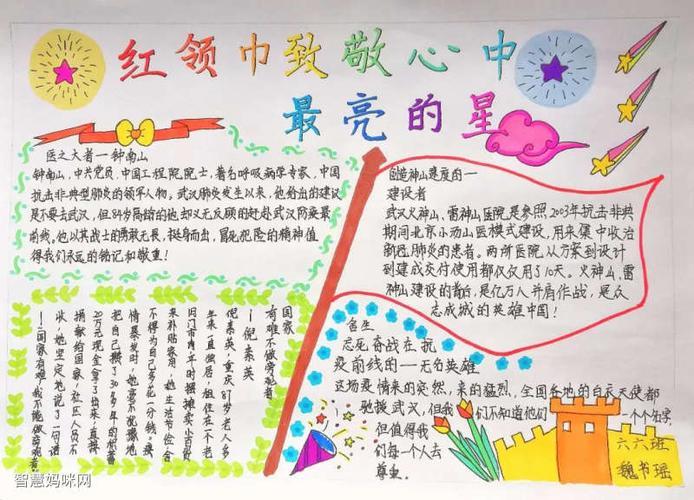 红领巾致敬心中
最亮的星
医之大者一钟南山
钟南山，中共党员，中国工程院院士，著名呼吸病学专家，中国
抗击非典型肺炎的领军人物。武汉肺炎发生以来，他给出的建议
是不要去武汉，但84岁高龄的他却义无反顾的赴武汉防疫最
前线。他以其战士的勇敢无畏，挺身而出，冒死犯险的精神值
得我们永远的铭记和敬重！
创造神山速度的一
建设者
武汉火神山，雷神山医院是参照2003年抗击非典
期间北京小汤山医模式建设，用来集中收治
新冠肺炎的患者。两所医院从方案到设计
到建成交付使用都仅仅用了10天。火神山，雷
神山建设的背后，是亿万人并肩作战，是众
志成城的英雄中国！
国家
有难不做旁观者
—倪素英
倪素英，重庆87岁老人多
年来一直独居，租住在一个老
旧门市内，平时摆摊卖小百货
来补贴家用，她生活节俭，舍
不得为自己多花一分钱。疫
情暴发时，她毫不犹豫地
把自己攒了30多年的积蓄
20万元现金拿了出来，直接
捐献给国家，社区人员不
收，她坚定地说了一句话
—国家有难，我不能做旁观者。
舍生
忘死奋战在抗
疫前线的一无名英雄
这场疫情来的突然，来的猛烈，全国各地的白衣天使都
驰援武汉，但我们不知道他们一个个名字，
但值得我
们每一个人去
尊重。
六六班
魏书瑶
智慧妈咪网